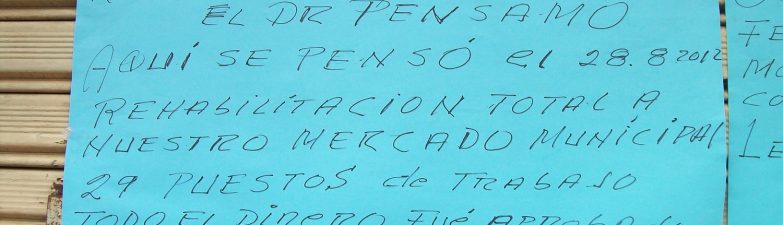 EL DR PENSAMO
AQUÍ SE PENSÓ el 28.8 2012
REHABILITACION TOTAL A
NUESTRO MERCADO MUNICIPAL
29 PUESTOS de TRABAJO
TODO EL DINERO FUÉ
FE
MO
CO
1E